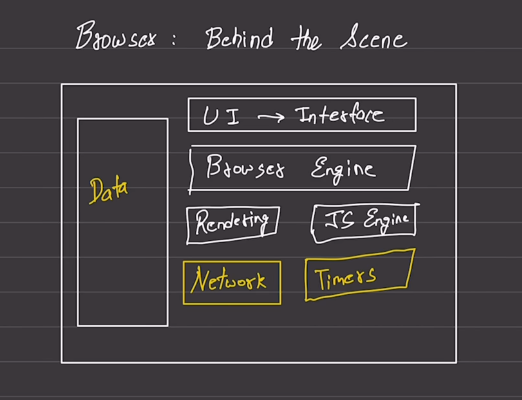 Browser: Behind the Scene
UI → Interface
Browser Engine
Data
Rendering
JS Engine
Network
Timers